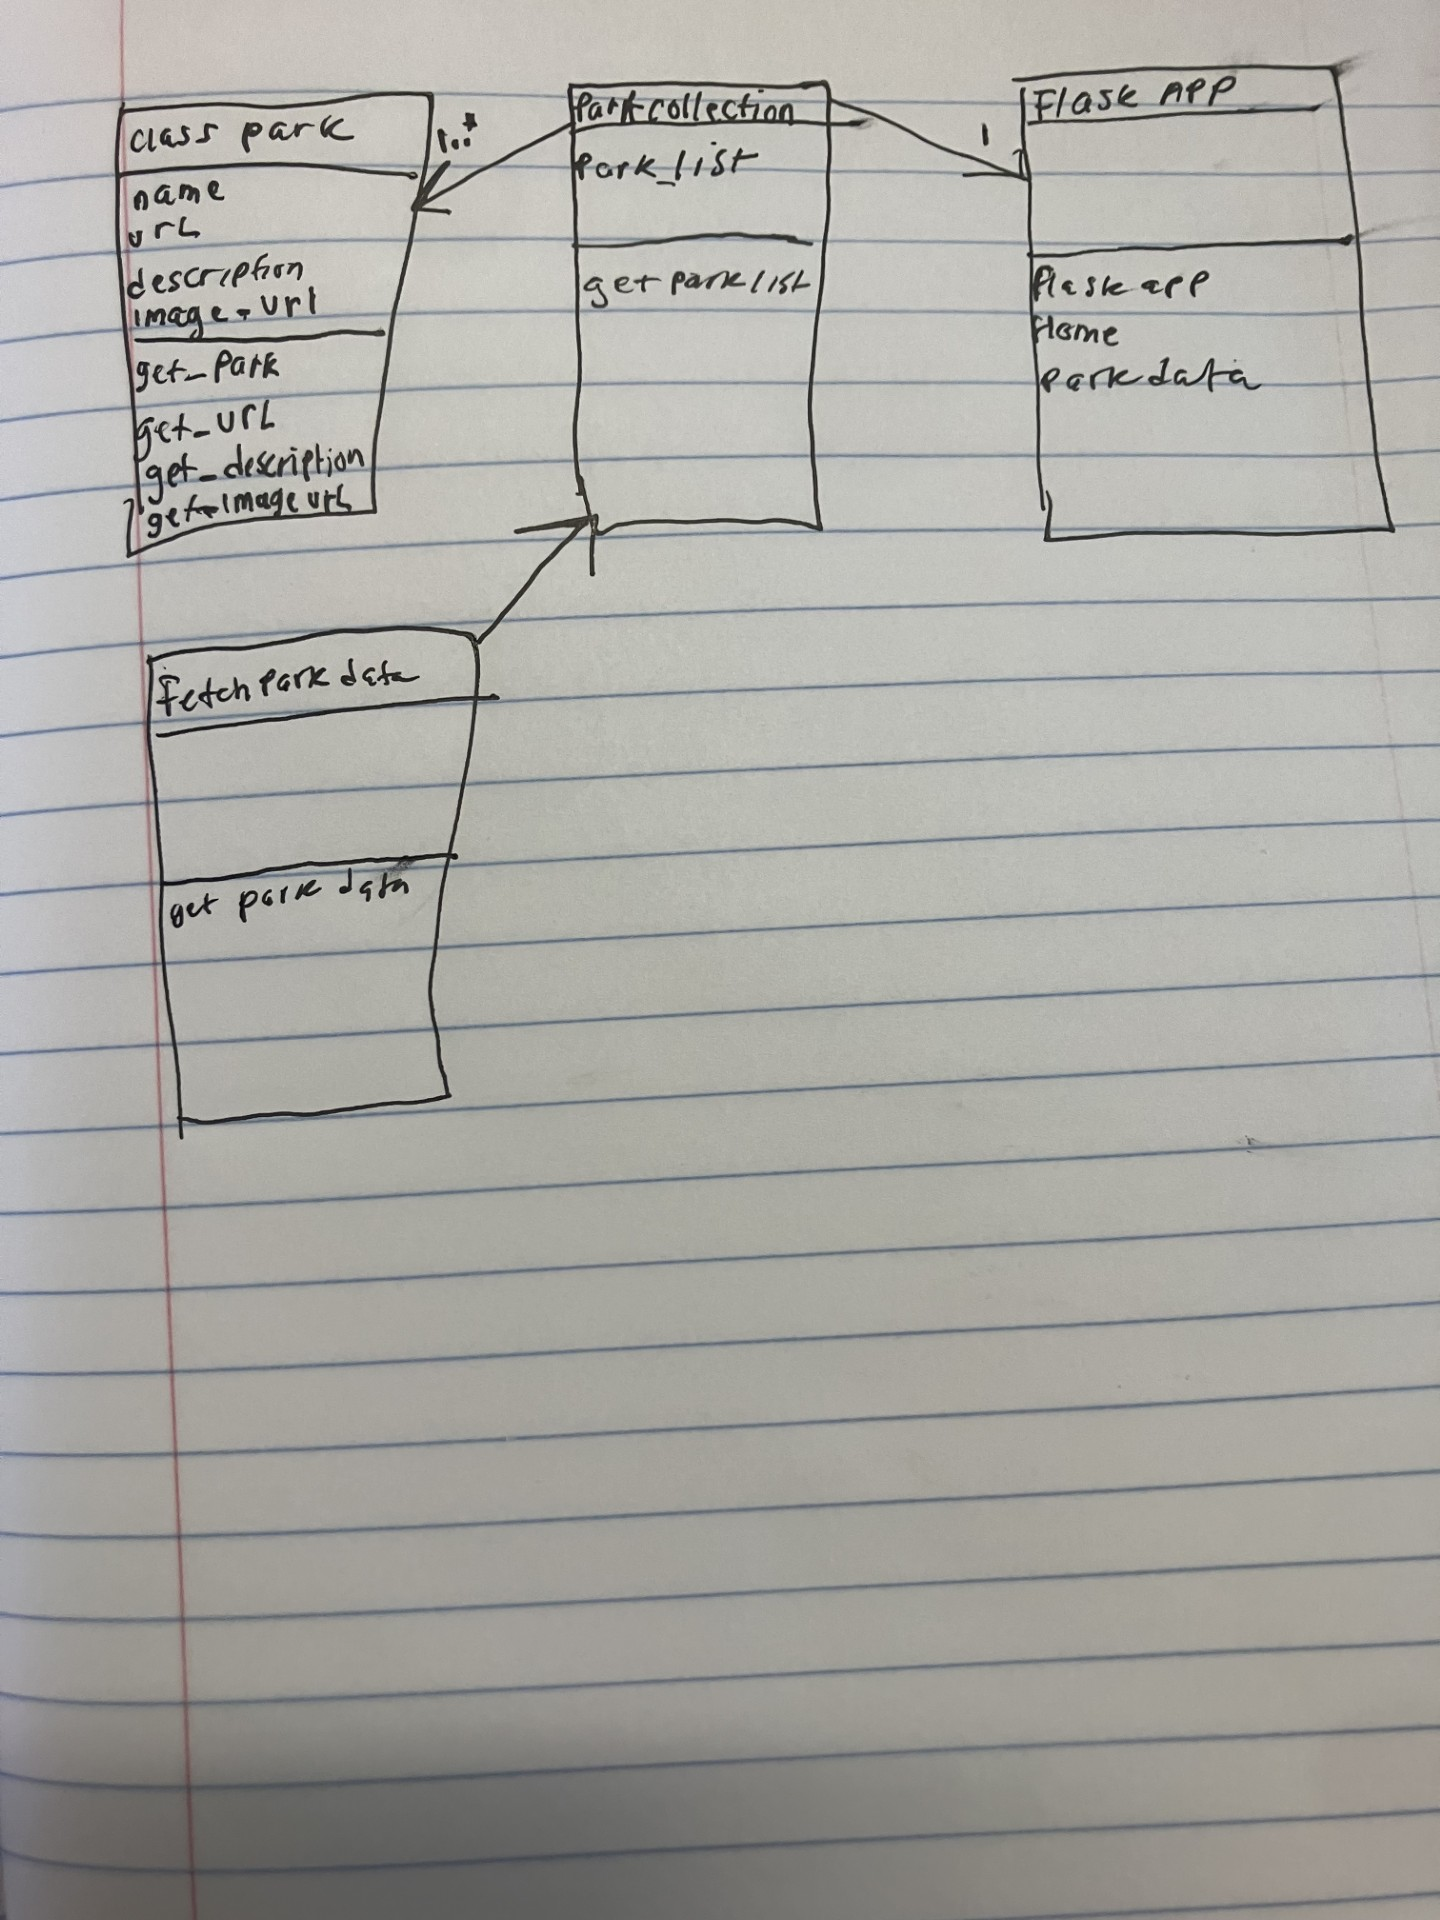 class park
1..*
name
url
description
image-url
get_Park
get_url
get_description
get-image url
Park collection
park_list
get park list
1
Flask APP
flask app
Home
park data
Fetch park data
get park data